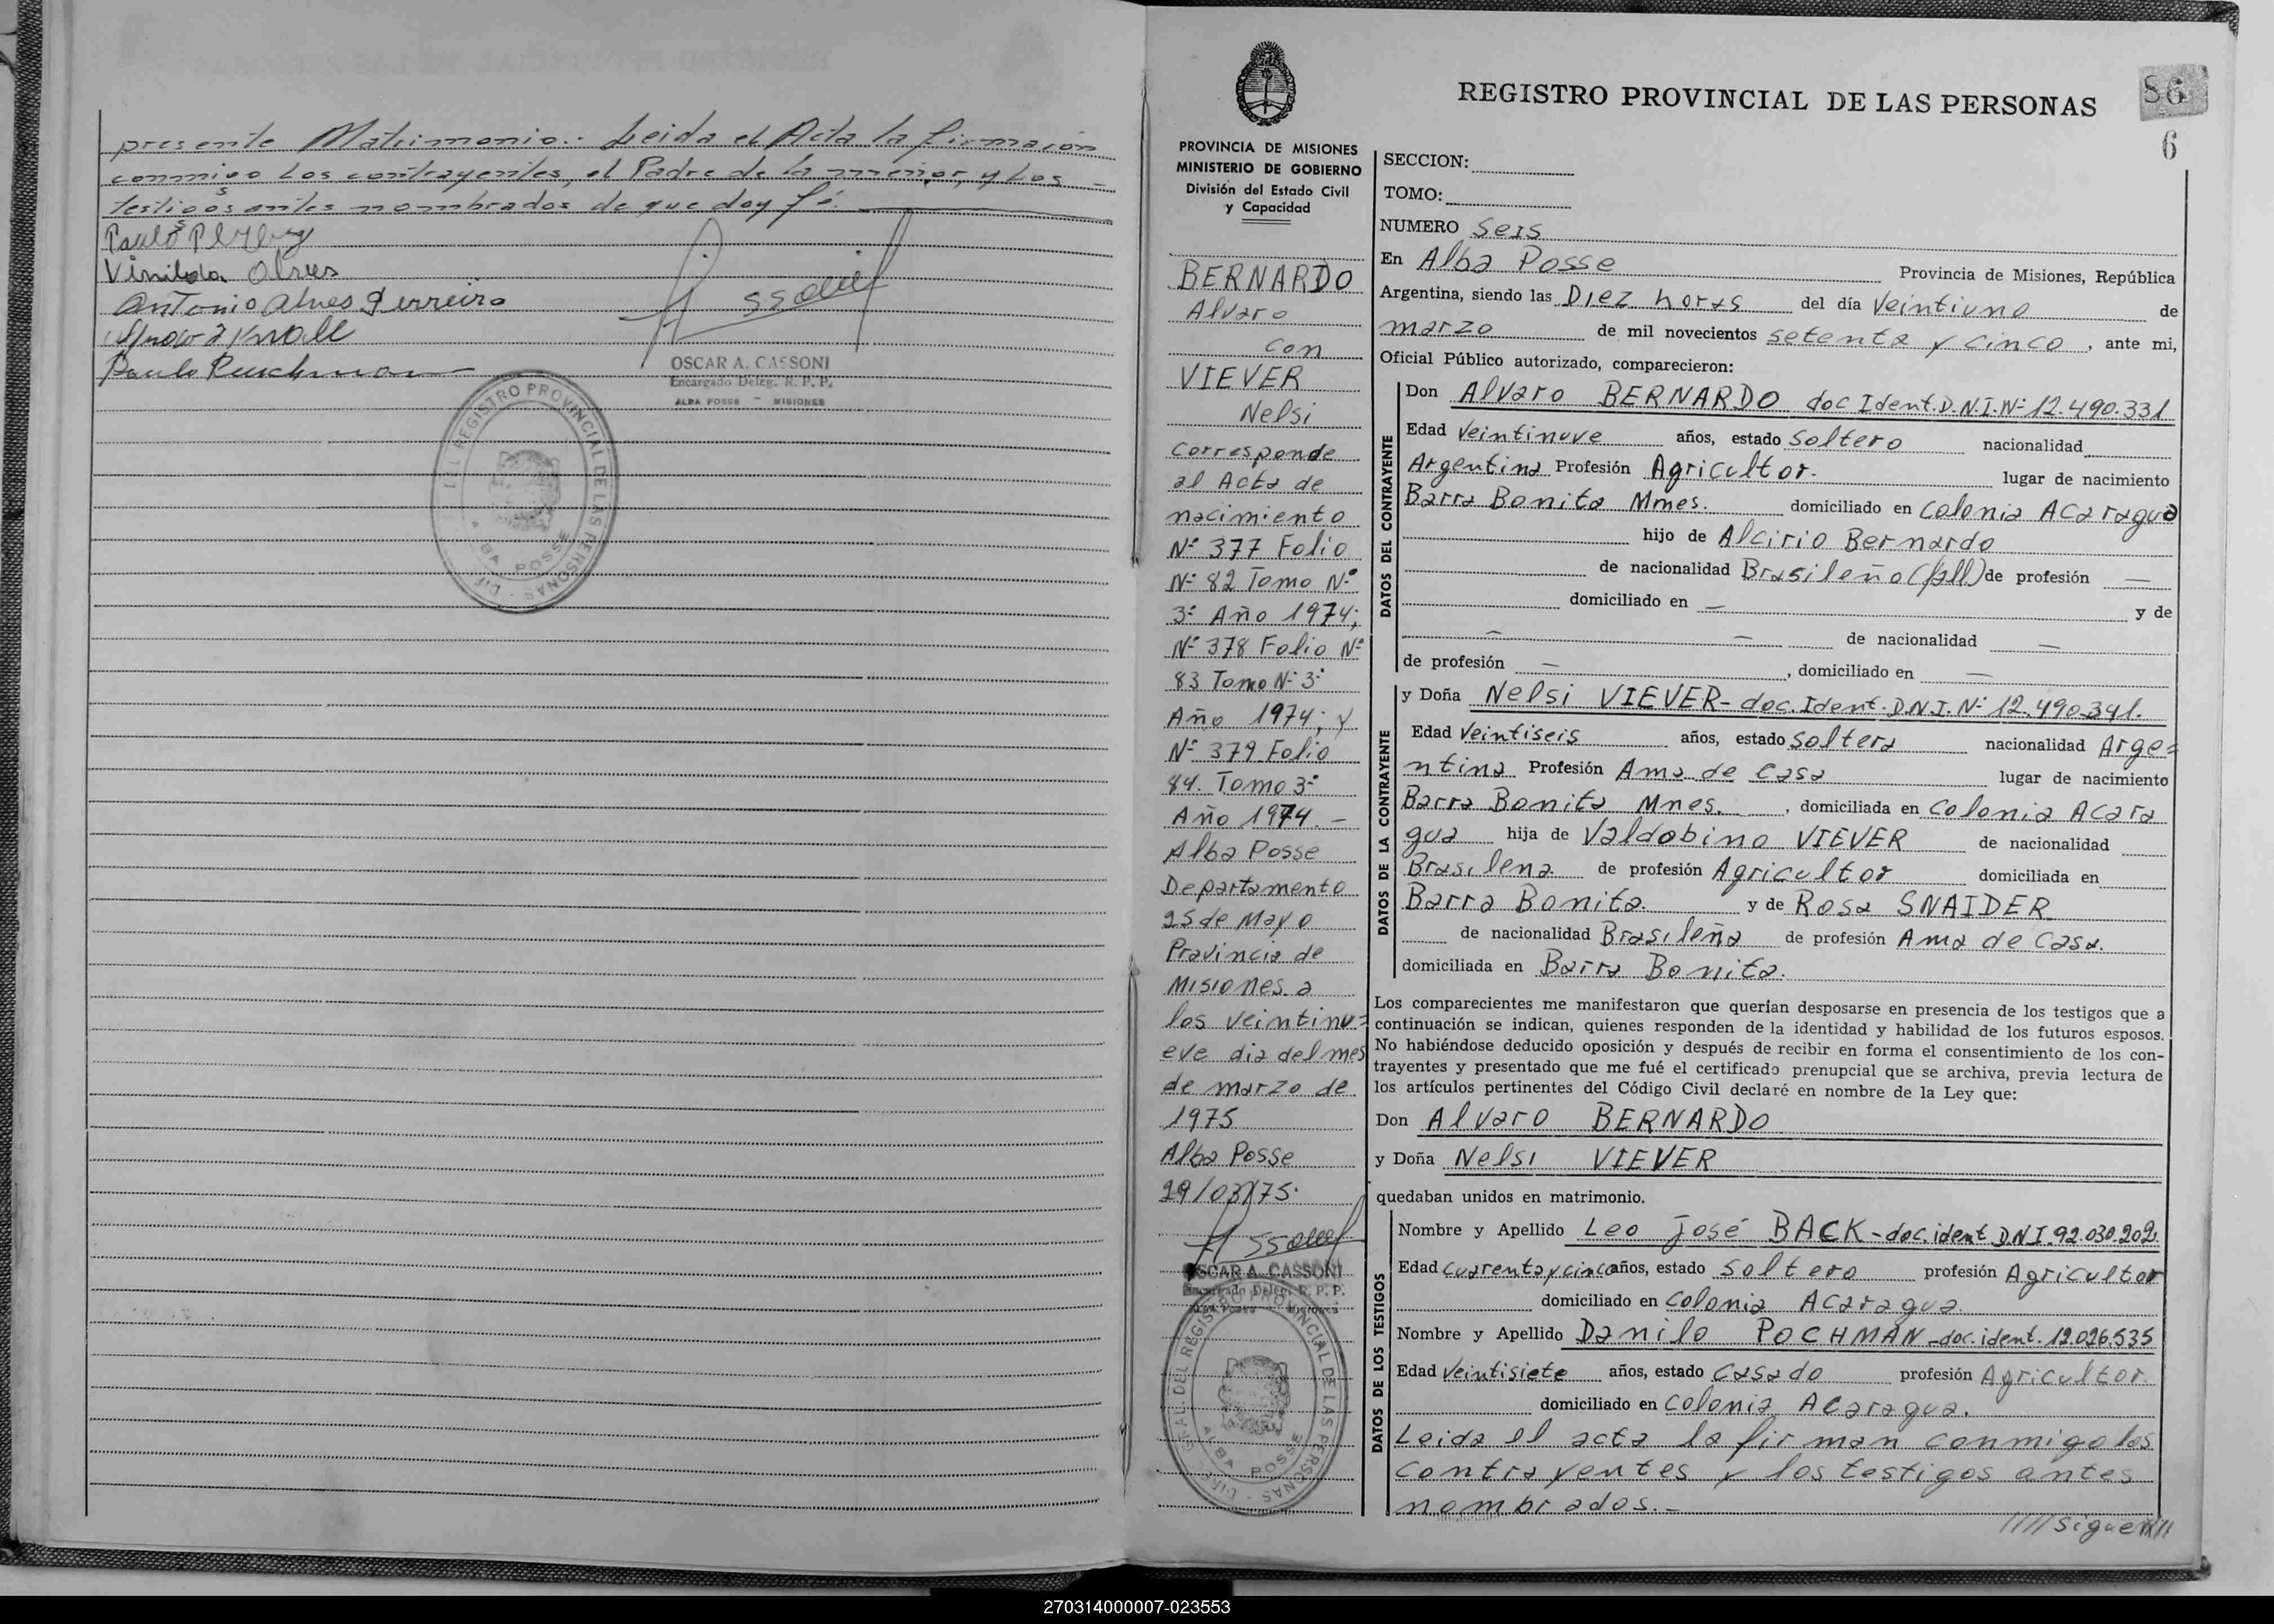 presente Matrimonio.- Leida el Acta la firmaron
conmigo Los contrayentes, el Padre de la menor, y Los
testigos antes nombrados de que doy fé.
Vinilda Alves
Antonio Alves Ferreira
Knoll
Paulo
OSCAR A. CASSONI
Encargado Deleg. R. P. P.
ALBA POSSE - MISIONES
DEL REGISTRO PROVINCIAL DE LAS PERSONAS
ALBA POSSE
REGISTRO PROVINCIAL DE LAS PERSONAS
86
6
PROVINCIA DE MISIONES
MINISTERIO DE GOBIERNO
División del Estado Civil
y Capacidad
BERNARDO
Alvaro
con
VIEVER
Nelsi
Corresponde
al Acta de
nacimiento
Nº 377 Folio
Nº 82 Tomo Nº
3º Año 1974;
Nº 378 Folio Nº
83 Tomo Nº 3º
Año 1974; y
Nº 379 Folio
84. Tomo 3º
Año 1974. -
Alba Posse
Departamento
25 de Mayo
Provincia de
Misiones a
los veintinu=
eve dia del mes
de marzo de
1975
Alba Posse
29/03/75.
OSCAR A. CASSONI
Encargado Deleg. R. P. P.
ALBA POSSE - MISIONES
GRAL. DEL REGISTRO PROVINCIAL DE LAS PERSONAS
ALBA POSSE
SECCION:
TOMO:
NUMERO Seis
En Alba Posse Provincia de Misiones, República
Argentina, siendo las Diez horas del día Veintiuno de
marzo de mil novecientos setenta y cinco, ante mi,
Oficial Público autorizado, comparecieron:
DATOS DEL CONTRAYENTE
Don Alvaro BERNARDO doc Ident. D.N.I. Nº 12.490.331
Edad Veintinuve años, estado Soltero nacionalidad
Argentina Profesión Agricultor. lugar de nacimiento
Barra Bonita Mnes. domiciliado en Colonia Acaragua
hijo de Alcirio Bernardo
de nacionalidad Brasileño (fall) de profesión —
domiciliado en — y de
— — de nacionalidad —
de profesión —, domiciliado en —
DATOS DE LA CONTRAYENTE
y Doña Nelsi VIEVER- doc. Ident. D.N.I. Nº 12.490.341.
Edad Veintiseis años, estado Soltera nacionalidad Arge=
ntina Profesión Ama de Casa lugar de nacimiento
Barra Bonita Mnes., domiciliada en Colonia Acara
gua hija de Valdobino VIEVER de nacionalidad
Brasilena. de profesión Agricultor domiciliada en
Barra Bonita. y de Rosa SNAIDER
de nacionalidad Brasileña de profesión Ama de Casa.
domiciliada en Barra Bonita.
Los comparecientes me manifestaron que querían desposarse en presencia de los testigos que a
continuación se indican, quienes responden de la identidad y habilidad de los futuros esposos.
No habiéndose deducido oposición y después de recibir en forma el consentimiento de los con-
trayentes y presentado que me fué el certificado prenupcial que se archiva, previa lectura de
los artículos pertinentes del Código Civil declaré en nombre de la Ley que:
Don Alvaro BERNARDO
y Doña Nelsi VIEVER
quedaban unidos en matrimonio.
DATOS DE LOS TESTIGOS
Nombre y Apellido Leo José BACK - doc. ident. D.N.I. 92.030.202.
Edad cuarenta y cinco años, estado Soltero profesión Agricultor
domiciliado en Colonia Acaragua.
Nombre y Apellido Danilo POCHMAN - doc. ident. 12.026.535
Edad Veintisiete años, estado Casado profesión Agricultor.
domiciliado en Colonia Acaragua.
Leida el acta la firman conmigo los
contrayentes y los testigos antes
nombrados.-
////Siguen///
270314000007-023553